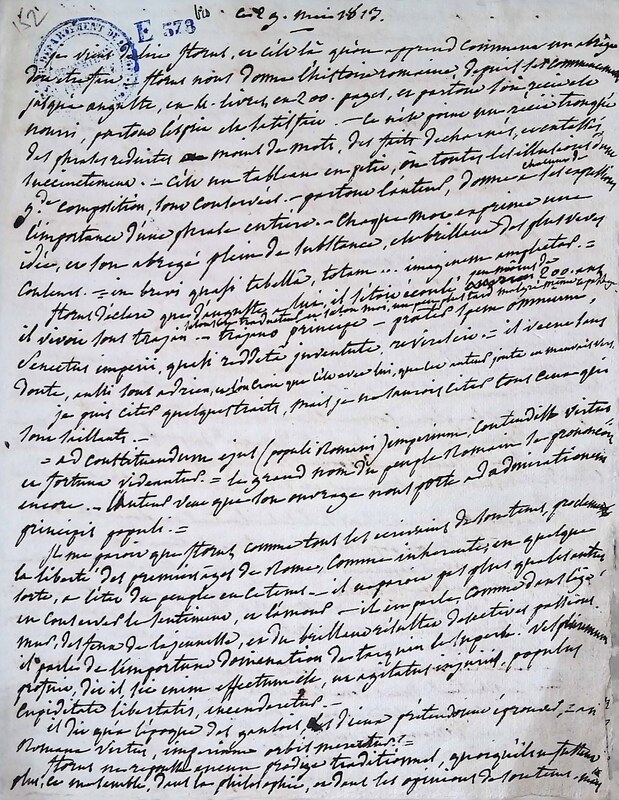 152
E 573 bis
ce 9. mai 1813.
DÉPARTEMENT DE
je viens de lire florus, et c'est là qu'on apprend comment un abrégé
doit être fait. florus nous donne l'histoire romaine, depuis le commencement
jusques auguste, en 4. livres, en 200. pages, et partout son récit est
nourri, partout l'esprit est satisfait. — Ce n'est point un récit tronqué
des phrases réduites moins de mots, des faits décharnés, et entassés
succinctement. — C'est un tableau en petit, où toutes les illusions d'une
gde composition, sont conservées. — partout l'auteur, donne à ses expressions
l'importance d'une phrase entière. — Chaque mot exprime une
idée, et son abrégé plein de substance, est brillant des plus vives
couleurs. = in brevi quasi tabellâ, totam ... imaginem amplectar. =
florus déclare que d'auguste à lui, il s'étoit écoulé peu moins de 200. ans
il vivoit sous trajan — trajano principe — praeter spem omnium,
senectus imperii, quasi redditâ juventute revirescit. = il vécut sans
doute, aussi sous adrien, et l'on croit que c'est avec lui, que cet auteur joute en mauvais vers.
je puis citer quelques traits, mais je ne saurois citer tous ceux qui
sont saillants. —
= ad constituendum ejus (populi Romani) imperium, contendisse virtus
et fortuna videantur. = le grand nom du peuple Romain se prononçoit
encore. — l'auteur veut que son ouvrage nous porte ad admirationem
principis populi. =
Il me paroit que florus, comme tous les écrivains de son tems, proclame
la liberté des premiers âges de Rome, comme inhérente, en quelque
sorte, à l'état du peuple en ce tems — il ne paroit pas plus que les autres
en conserver le sentiment, et l'amour — il en parle, comme dans l'âge
mur, des feux de la jeunesse, et du brillant résultat de ses vives passions.
il parle de l'importune domination de tarquin le superbe. Vel plurimum
profuit, dit il, sic enim effectum est, ut agitatus injuriis, populus
cupiditate libertatis, incenderetur. —
il dit qu'à l'époque des gaulois, les dieux prétendirent éprouver, = an
Romana virtus, imperium orbis mereretur. =
florus ne repousse aucun prodige traditionnel, quoiqu'ils ne fussent
plus, ce me semble, dans la philosophie, et dans les opinions de son tems